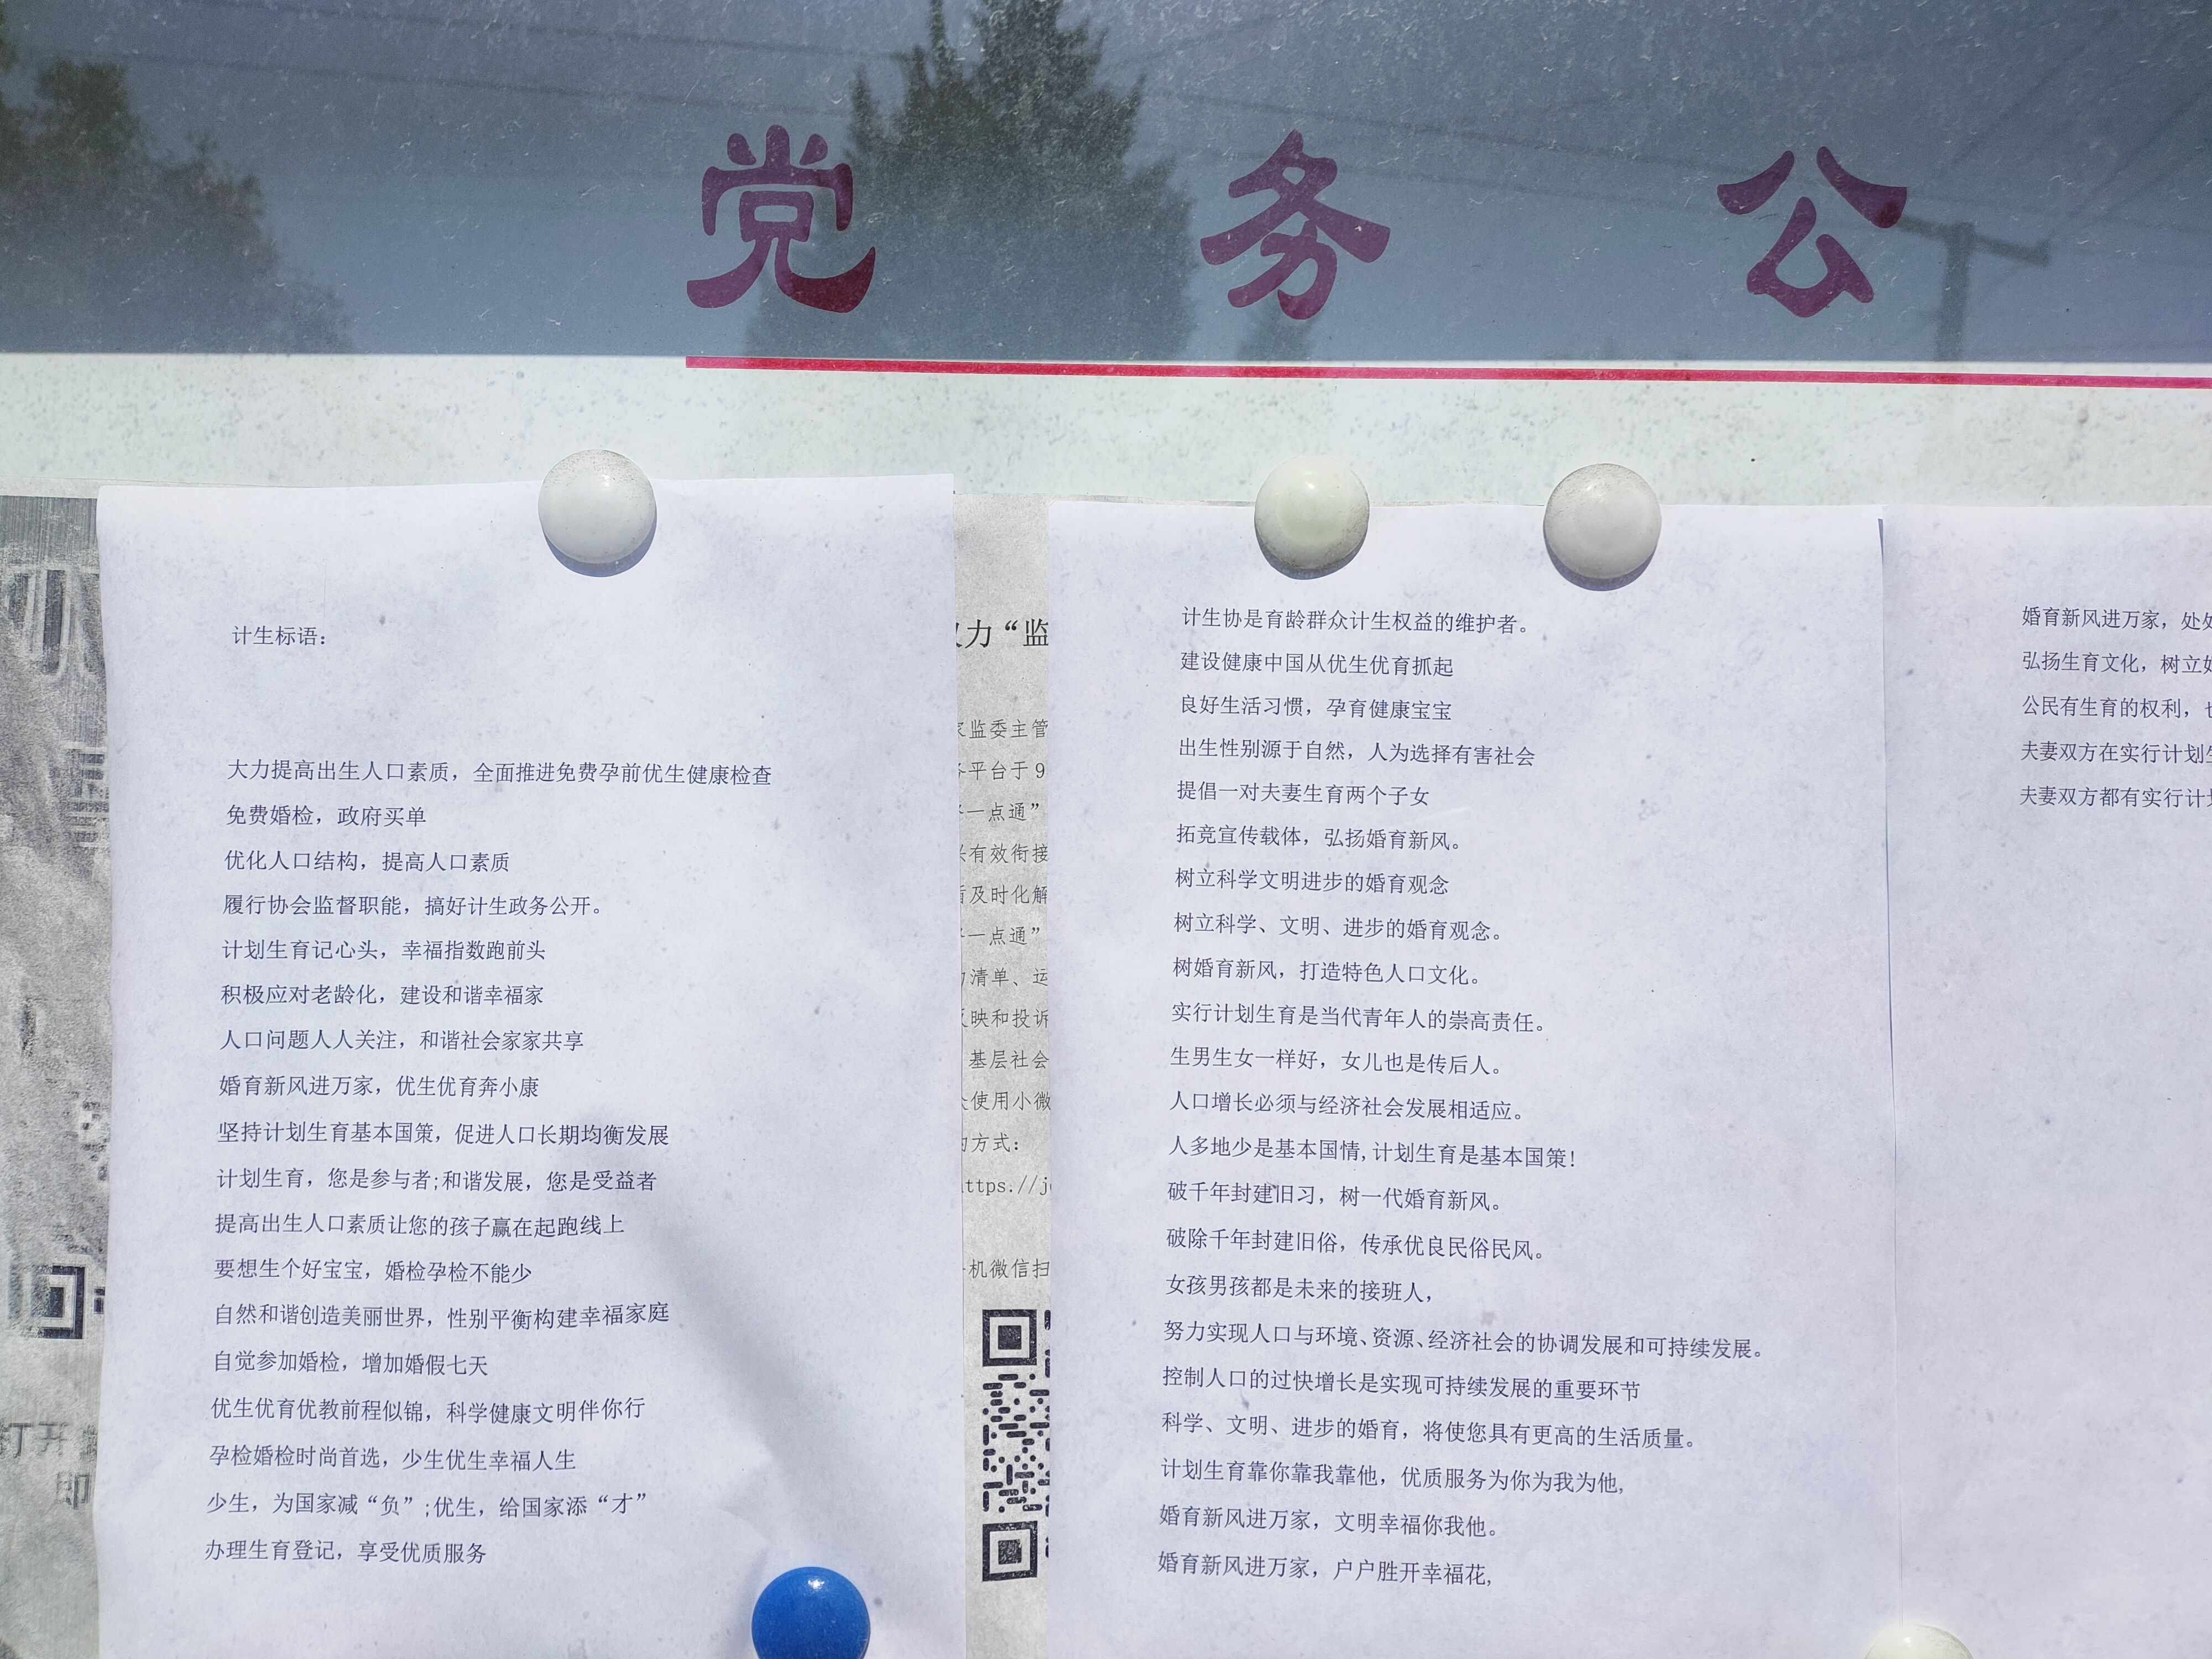 党务公
计生标语：
大力提高出生人口素质，全面推进免费孕前优生健康检查
免费婚检，政府买单
优化人口结构，提高人口素质
履行协会监督职能，搞好计生政务公开。
计划生育记心头，幸福指数跑前头
积极应对老龄化，建设和谐幸福家
人口问题人人关注，和谐社会家家共享
婚育新风进万家，优生优育奔小康
坚持计划生育基本国策，促进人口长期均衡发展
计划生育，您是参与者;和谐发展，您是受益者
提高出生人口素质让您的孩子赢在起跑线上
要想生个好宝宝，婚检孕检不能少
自然和谐创造美丽世界，性别平衡构建幸福家庭
自觉参加婚检，增加婚假七天
优生优育优教前程似锦，科学健康文明伴你行
孕检婚检时尚首选，少生优生幸福人生
少生，为国家减“负”;优生，给国家添“才”
办理生育登记，享受优质服务
力“监
监委主管
平台于9
一点通”
有效衔接
及时化解
一点通”
清单、运
映和投诉
基层社会
使用小微
方式：
ttps.//j
机微信扫
计生协是育龄群众计生权益的维护者。
建设健康中国从优生优育抓起
良好生活习惯，孕育健康宝宝
出生性别源于自然，人为选择有害社会
提倡一对夫妻生育两个子女
拓竞宣传载体，弘扬婚育新风。
树立科学文明进步的婚育观念
树立科学、文明、进步的婚育观念。
树婚育新风，打造特色人口文化。
实行计划生育是当代青年人的崇高责任。
生男生女一样好，女儿也是传后人。
人口增长必须与经济社会发展相适应。
人多地少是基本国情,计划生育是基本国策!
破千年封建旧习，树一代婚育新风。
破除千年封建旧俗，传承优良民俗民风。
女孩男孩都是未来的接班人，
努力实现人口与环境、资源、经济社会的协调发展和可持续发展。
控制人口的过快增长是实现可持续发展的重要环节
科学、文明、进步的婚育，将使您具有更高的生活质量。
计划生育靠你靠我靠他，优质服务为你为我为他,
婚育新风进万家，文明幸福你我他。
婚育新风进万家，户户胜开幸福花,
婚育新风进万家，处处
弘扬生育文化，树立
公民有生育的权利，也
夫妻双方在实行计划生
夫妻双方都有实行计划
打开
即